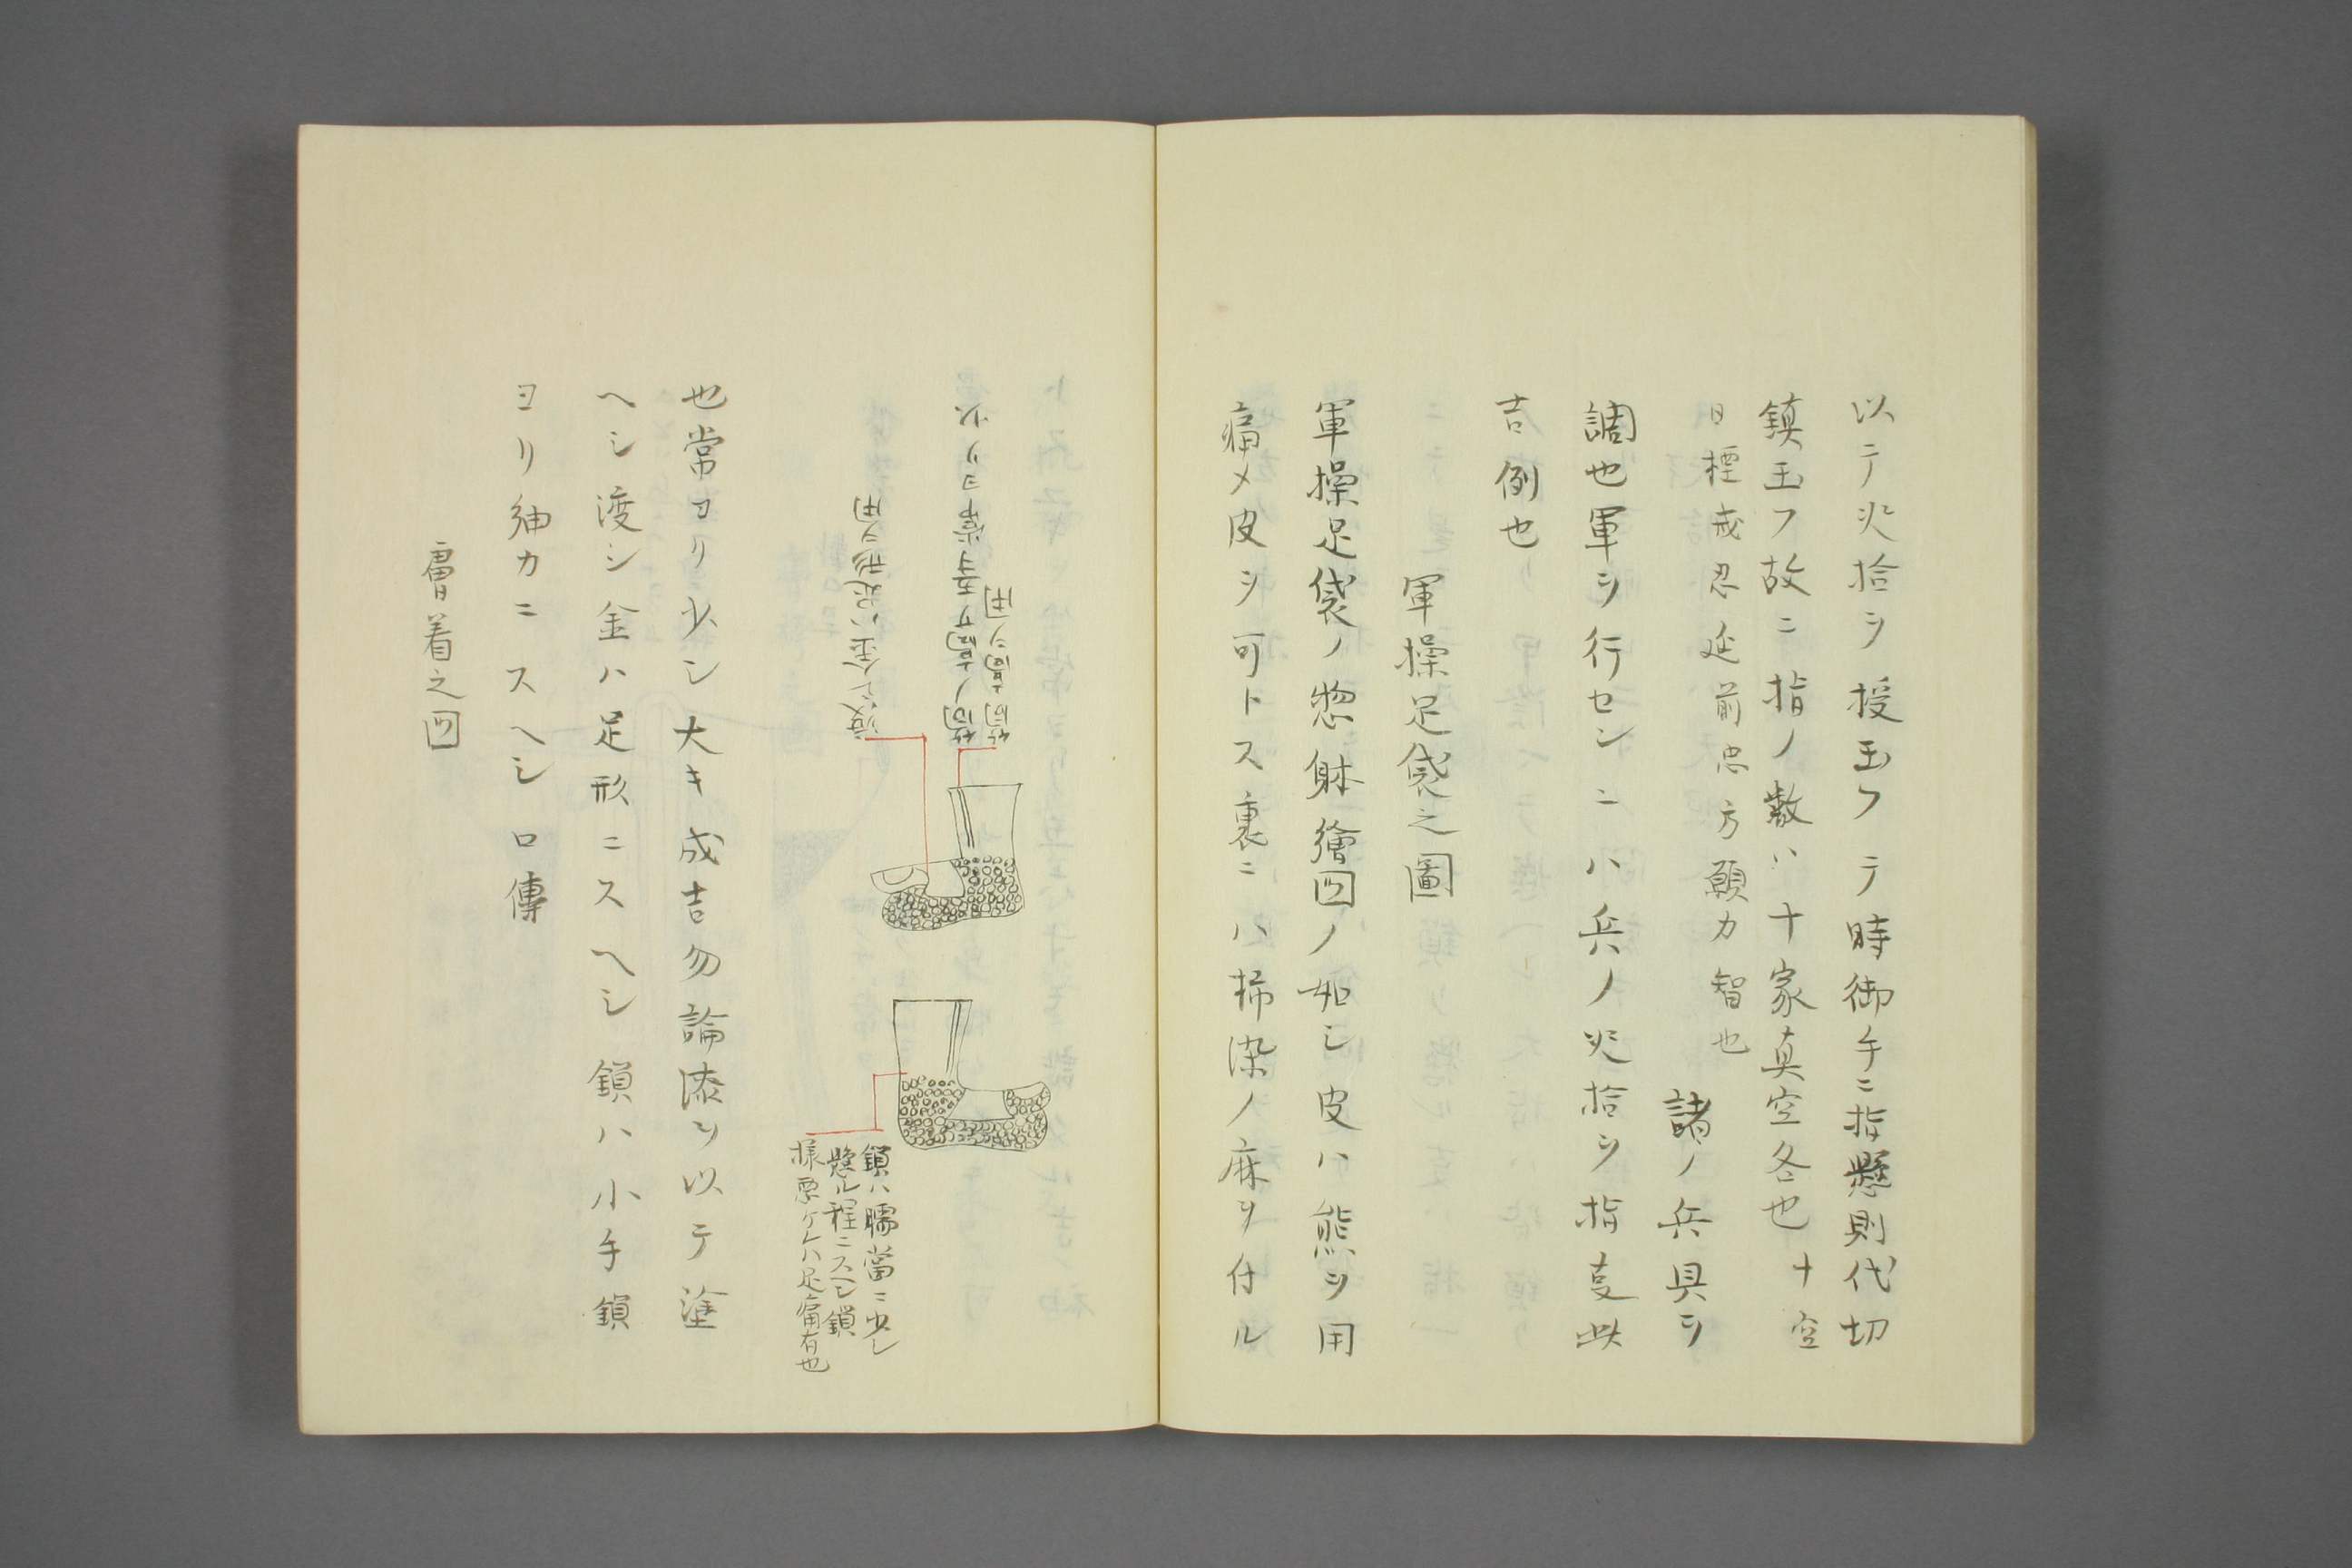 以テ火拾ヲ授玉フテ時御手ニ指懸則代切
鎮玉フ故ニ指ノ数ハ十家真空冬也十空
日檀戒忍延前忠方願力智也
諸ノ兵具ヲ
調也軍ヲ行センニハ兵ノ火拾ヲ指支此
吉例也
軍操足袋之圖
軍操足袋ノ惣躰繪図ノ如シ皮ハ熊ヲ用
痛メ皮ヲ可トス裏ニハ掃染ノ麻ヲ付ル
筒ノ高サ五寸常ヨリ少
筒高ヲ用
渡シ金ハ足形ヲ用
鎖ハ臑當ニ少シ
懸ル程ニスヘシ鎖
様悪ケレハ足痛有也
也常ヨリ少シ大キ成吉勿論漆ヲ以テ塗
ヘシ渡シ金ハ足形ニスヘシ鎖ハ小手鎖
ヨリ細カニスヘシ口傳
膚着之図